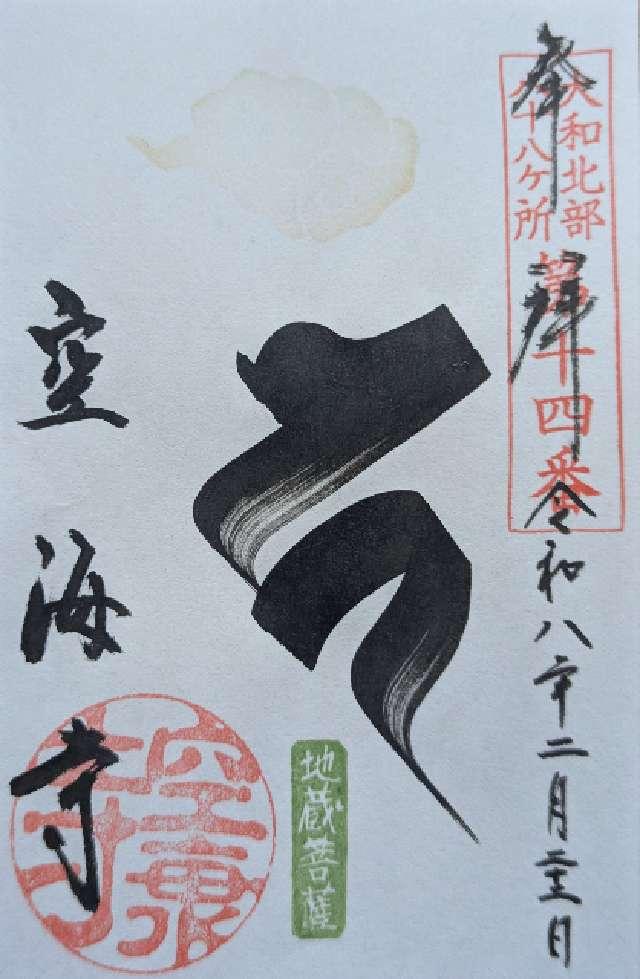 奉拝
大和北部
八十八ヶ所
第十四番
令和八年二月二十三日
地蔵菩薩
空海寺